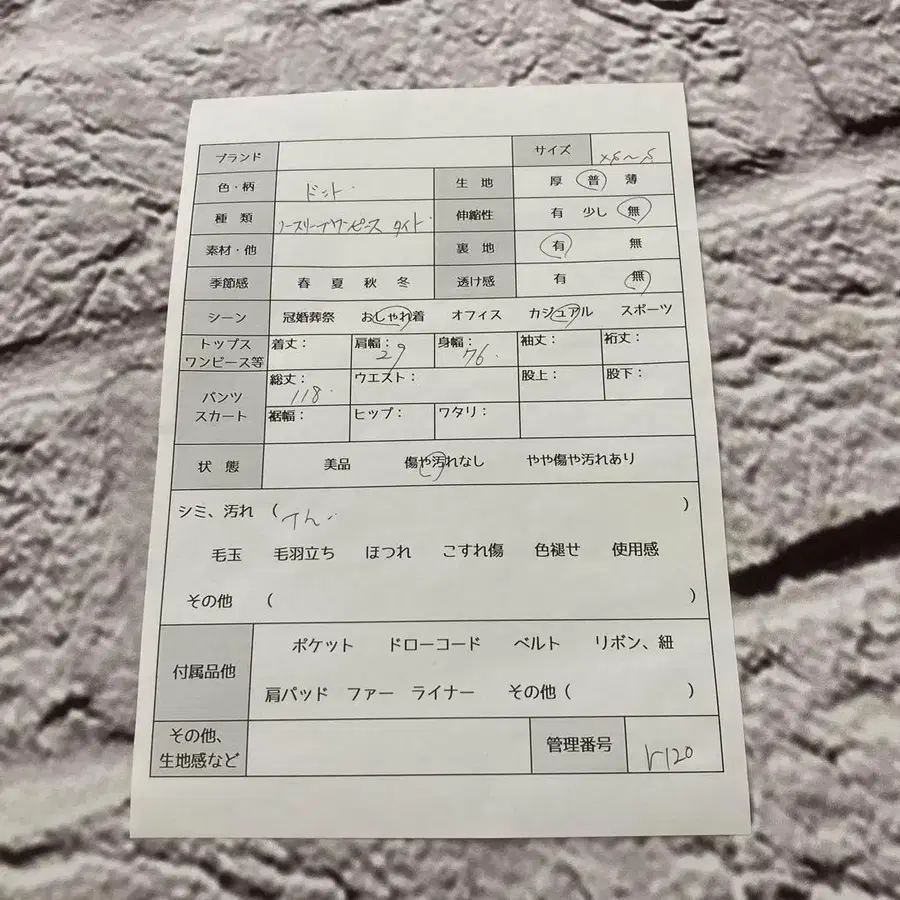 ブランド サイズ xs～s
色・柄 ドット. 生地 厚 普 薄
種類 ノースリーブワンピース タイト. 伸縮性 有 少し 無
素材・他 裏地 有 無
季節感 春 夏 秋 冬 透け感 有 無
シーン 冠婚葬祭 おしゃれ着 オフィス カジュアル スポーツ
トップス ワンピース等 着丈： 肩幅： 29 身幅： 76. 袖丈： 裄丈：
パンツ スカート 総丈： 118. ウエスト： 股上： 股下：
裾幅： ヒップ： ワタリ：
状態 美品 傷や汚れなし やや傷や汚れあり
シミ、汚れ ( )
毛玉 毛羽立ち ほつれ こすれ傷 色褪せ 使用感
その他 ( )
付属品他 ポケット ドローコード ベルト リボン、紐
肩パッド ファー ライナー その他 ( )
その他、 生地感など 管理番号 r120